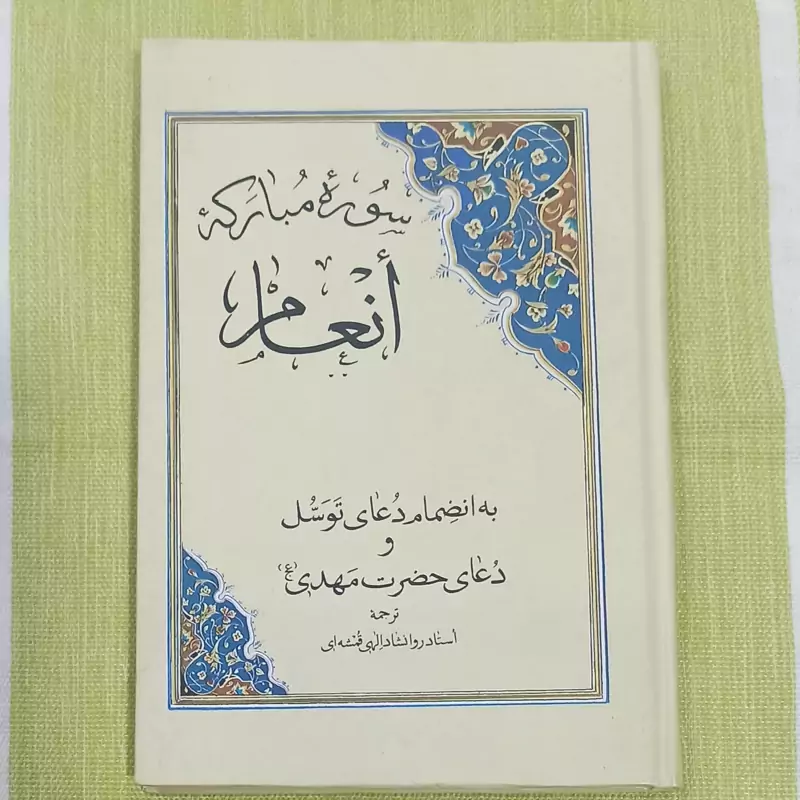 سُورهٔ مُبارَکهٔ
أنعام
به انضِمام دُعای تَوَسُّل
و
دُعای حضرت مَهدی (عج)
ترجمهٔ
أستاد روانشاد إلهی قُمشه‌ای